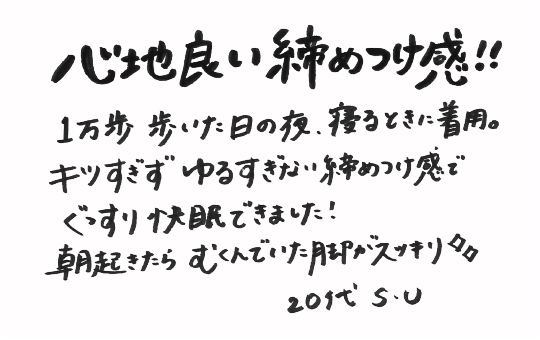 心地良い締めつけ感!!
1万歩 歩いた日の夜、寝るときに着用。
キツすぎず ゆるすぎない締めつけ感で
ぐっすり快眠できました!
朝起きたら むくんでいた脚がスッキリ
20代 S.U